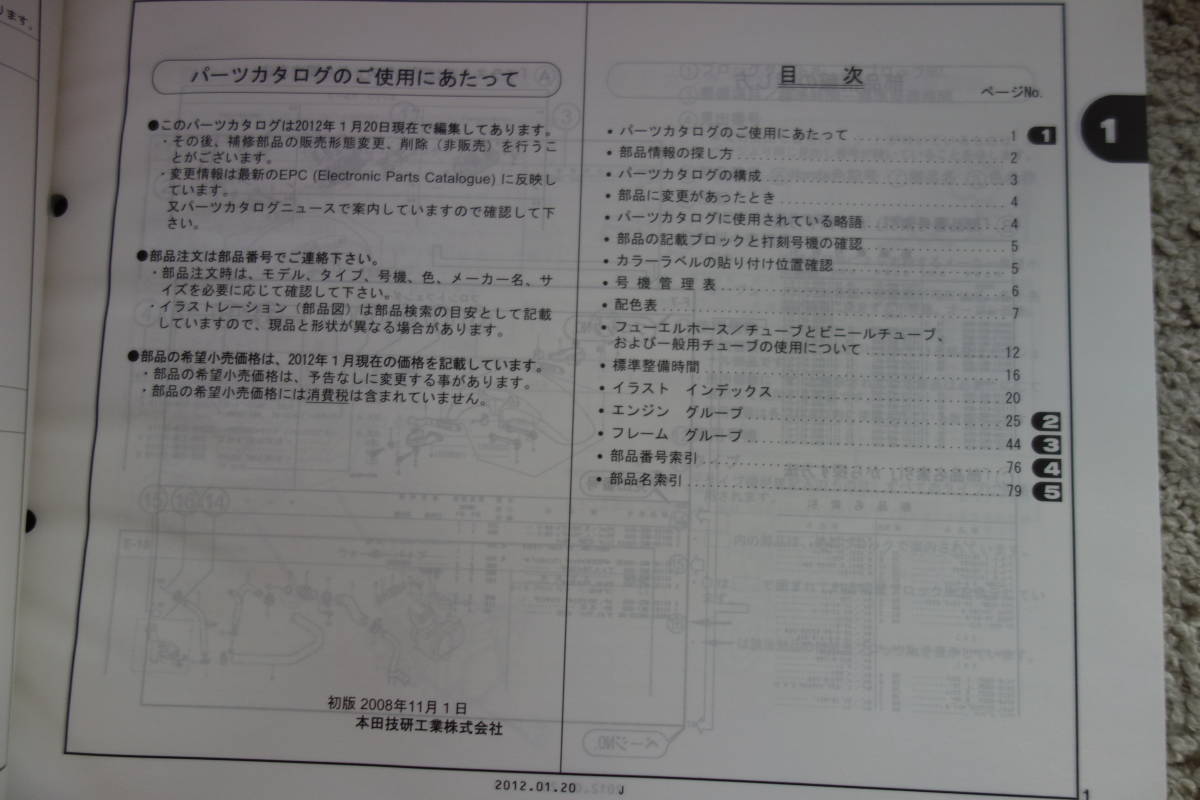 ります。
パーツカタログのご使用にあたって
●このパーツカタログは2012年1月20日現在で編集してあります。
・その後、補修部品の販売形態変更、削除（非販売）を行うこ
とがございます。
・変更情報は最新のEPC (Electronic Parts Catalogue) に反映し
ています。
又パーツカタログニュースで案内していますので確認して下
さい。
●部品注文は部品番号でご連絡下さい。
・部品注文時は、モデル、タイプ、号機、色、メーカー名、サ
イズを必要に応じて確認して下さい。
・イラストレーション（部品図）は部品検索の目安として記載
していますので、現品と形状が異なる場合があります。
●部品の希望小売価格は、2012年1月現在の価格を記載しています。
・部品の希望小売価格は、予告なしに変更する事があります。
・部品の希望小売価格には消費税は含まれていません。
初版 2008年11月1日
本田技研工業株式会社
目 次
ページNo.
• パーツカタログのご使用にあたって 1 1
• 部品情報の探し方 2
• パーツカタログの構成 3
• 部品に変更があったとき 4
• パーツカタログに使用されている略語 4
• 部品の記載ブロックと打刻号機の確認 5
• カラーラベルの貼り付け位置確認 5
• 号 機 管 理 表 6
• 配色表 7
• フューエルホース／チューブとビニールチューブ、
および一般用チューブの使用について 12
• 標準整備時間 16
• イラスト インデックス 20
• エンジン グループ 25 2
• フレーム グループ 44 3
• 部品番号索引 76 4
• 部品名索引 79 5
1
2012.01.20 J
1